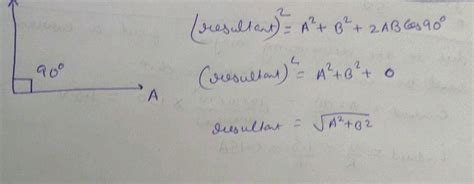 (resultant)² = A² + B² + 2AB Cos90°
90°
(resultant)² = A² + B² + 0
A
resultant = √A²+B²